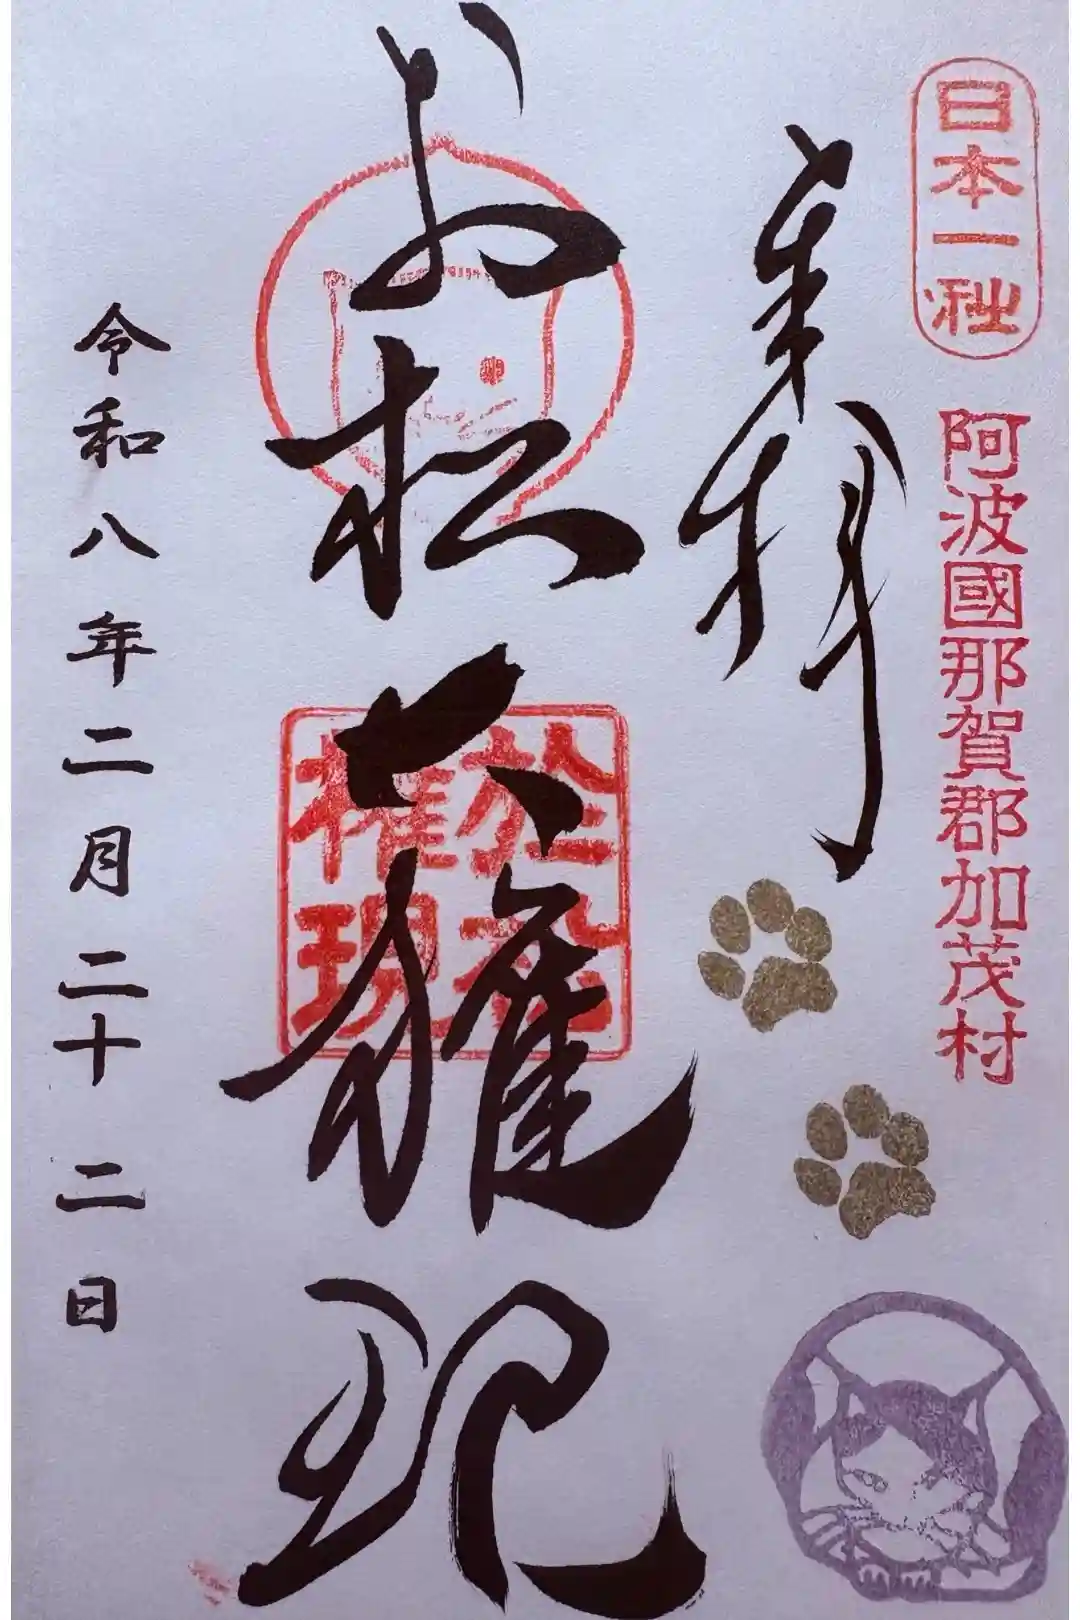 日本一社
阿波國那賀郡加茂村
奉拝
お松大権現
於松大
権現
令和八年二月二十二日